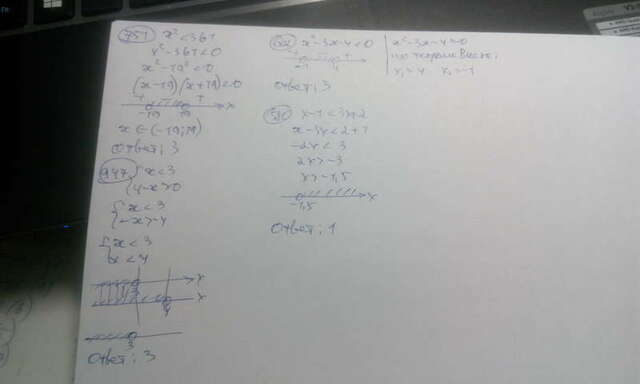 751 x² < 361
x² - 361 < 0
x² - 19² < 0
(x-19)(x+19) < 0
+ + x
-19 19
x ∈ (-19; 19)
Ответ: 3
947 { x < 3
4-x > 0
{ x < 3
-x > -4
{ x < 3
x < 4
x
3
x
4
3
Ответ: 3
x² - 3x - 4 < 0
+ - +
-1 4
Ответ: 3
x² - 3x - 4 = 0
по теореме Виета:
x₁ = 4 x₂ = -1
x - 1 < 3x + 2
x - 3x < 2 + 1
-2x < 3
2x > -3
x > -1,5
x
-1,5
Ответ: 1